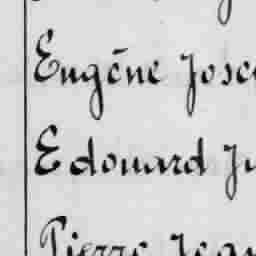 Eugéne Jose
Edouard Ju
Pierre Jean